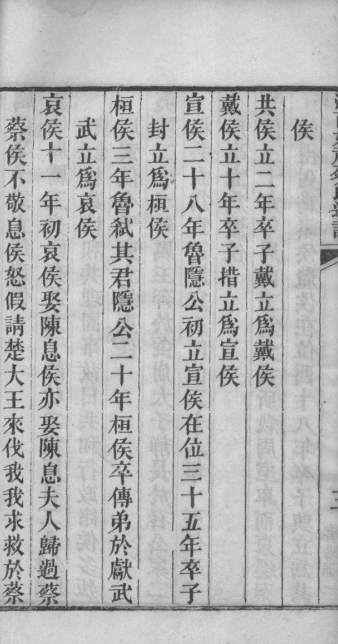 侯
共侯立二年卒子戴立爲戴侯
戴侯立十年卒子措立爲宣侯
宣侯二十八年魯隱公初立宣侯在位三十五年卒子
封立爲桓侯
桓侯三年魯弑其君隱公二十年桓侯卒傳弟於獻武
武立爲哀侯
哀侯十一年初哀侯娶陳息侯亦娶陳息夫人歸過蔡
蔡侯不敬息侯怒假請楚大王來伐我我求救於蔡